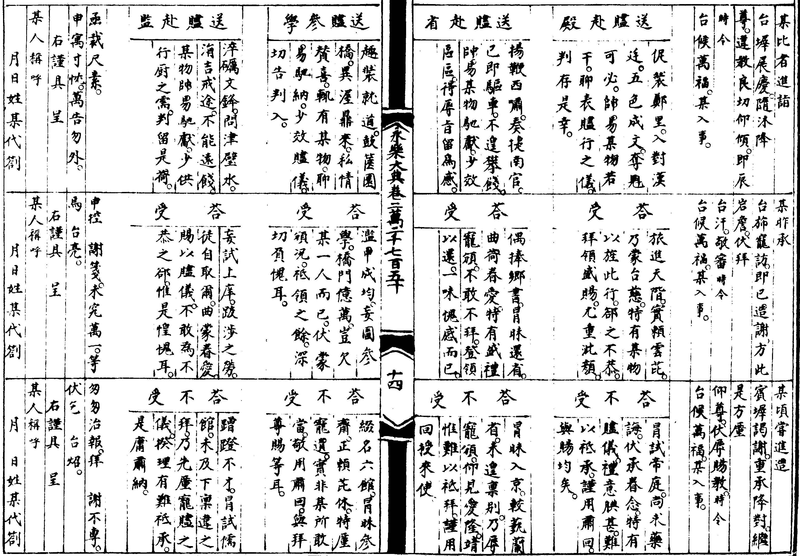 某比者進詣
台墀展慶隨沐降
尊還教良切仰傾即辰
時令
台候萬福某入事
送贐赴殿
促裝鄭里入對漢
廷五色成文奪魁
可必帥易某物若
干聊表贐行之儀
判存是幸
送贐赴省
揚鞭西嘯奏捷南宮
已即驅車不遑舉餞
帥易某物馳獻少效
區區得辱旨留為感
送贐參學
趣裝就道鼓篋園
橋異渥鼎來私情
贊喜輒有某物聊
易馳納少效贐儀
切告判入
送贐赴監
淬礪文鋒問津璧水
涓吉戒途不能遠餞
某物帥易馳獻少供
行廚之需判留是荷
亟裁尺素
申寓寸忱萬告勿外
右謹具 呈
某人稱呼
月日姓某代劄
永樂大典卷二萬二千七百五十
十四
某昨承
台斾寵訪即已造謝方此
詹伏拜
時令
台汗敬審時令
台候萬福某入事
答受
旅進天階實賴雲芘
乃蒙台慈特有某物
以旌此行郤之不恭
拜領盛賜尤重泚顙
答受
偶捧鄉書冒昧還省
曲荷眷愛特有盛禮
寵頒不敢不拜登領
以還一味愧感而已
答受
濫中成均妄圖參
學橋門億萬豈欠
某一人而已伏蒙
頒況祗領之餘深
切負愧耳
答受
妄試上庠跋涉之勞
徒自取爾曲蒙眷愛
賜以贐儀不敢為不
恭之郤惟是惶愧耳
申控 謝箋未究萬一等
馬 台亮
右謹具 呈
某人稱呼
月日姓某代劄
某頃嘗進造
賓墀謁謝重承降對繼
是方厪
仰尊伏辱賜教時令
台候萬福某入事
答不受
冒試帝庭尚未藥
誨伏承眷念特有
贐儀禮意腆甚難
以祗承謹用肅回
與賜均矣
答不受
冒昧入京較藝蘭
省未遑稟別乃辱
寵頒仰見愛隆靖
惟難以祗拜謹用
回授來使
答不受
綴名六館冒昧參
齋正賴芘休特厪
寵遺實非某所敢
當敬用肅回與拜
尊賜等耳
答不受
蹭蹬不才冒試儒
館未及下稟違之
拜乃先厪寵贐之
儀揆理有難祗承
是庸肅納
匆匆治報拜 謝不專
伏乞 台炤
右謹具 呈
某人稱呼
月日姓某代劄